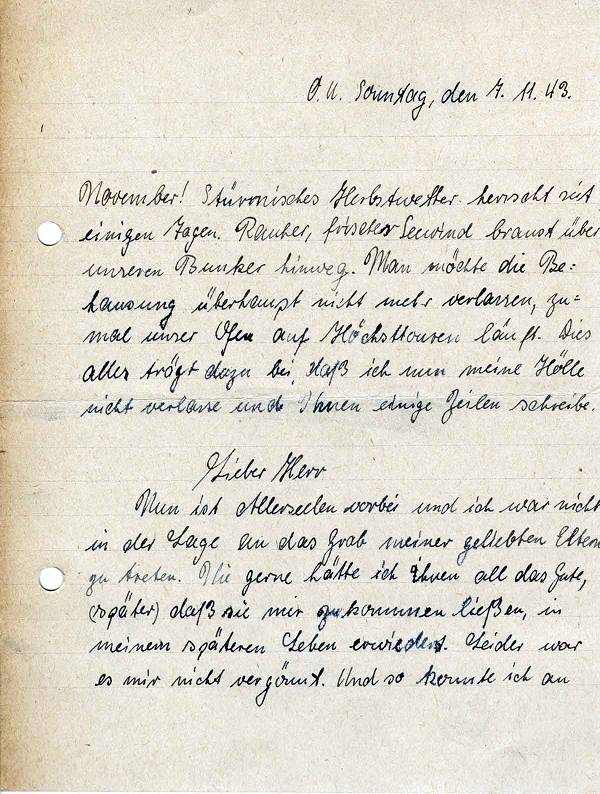 O.U. Sonntag, den 7.11.43.
November! Stürmisches Herbstwetter herrscht seit
einigen Tagen. Rauher, frischer Seewind braust über
unseren Bunker hinweg. Man möchte die Be=
hausung überhaupt nicht mehr verlassen, zu=
mal unser Ofen auf Höchsttouren läuft. Dies
alles trägt dazu bei, daß ich nun meine Hölle
nicht verlasse und Ihnen einige Zeilen schreibe.
Lieber Herr
Nun ist Allerseelen vorbei und ich war nicht
in der Lage an das Grab meiner geliebten Eltern
zu treten. Wie gerne hätte ich Ihnen all das Gute,
(später) daß sie mir zukommen ließen, in
meinem späteren Leben erwiedert. Leider war
es mir nicht vergönnt. Und so konnte ich an